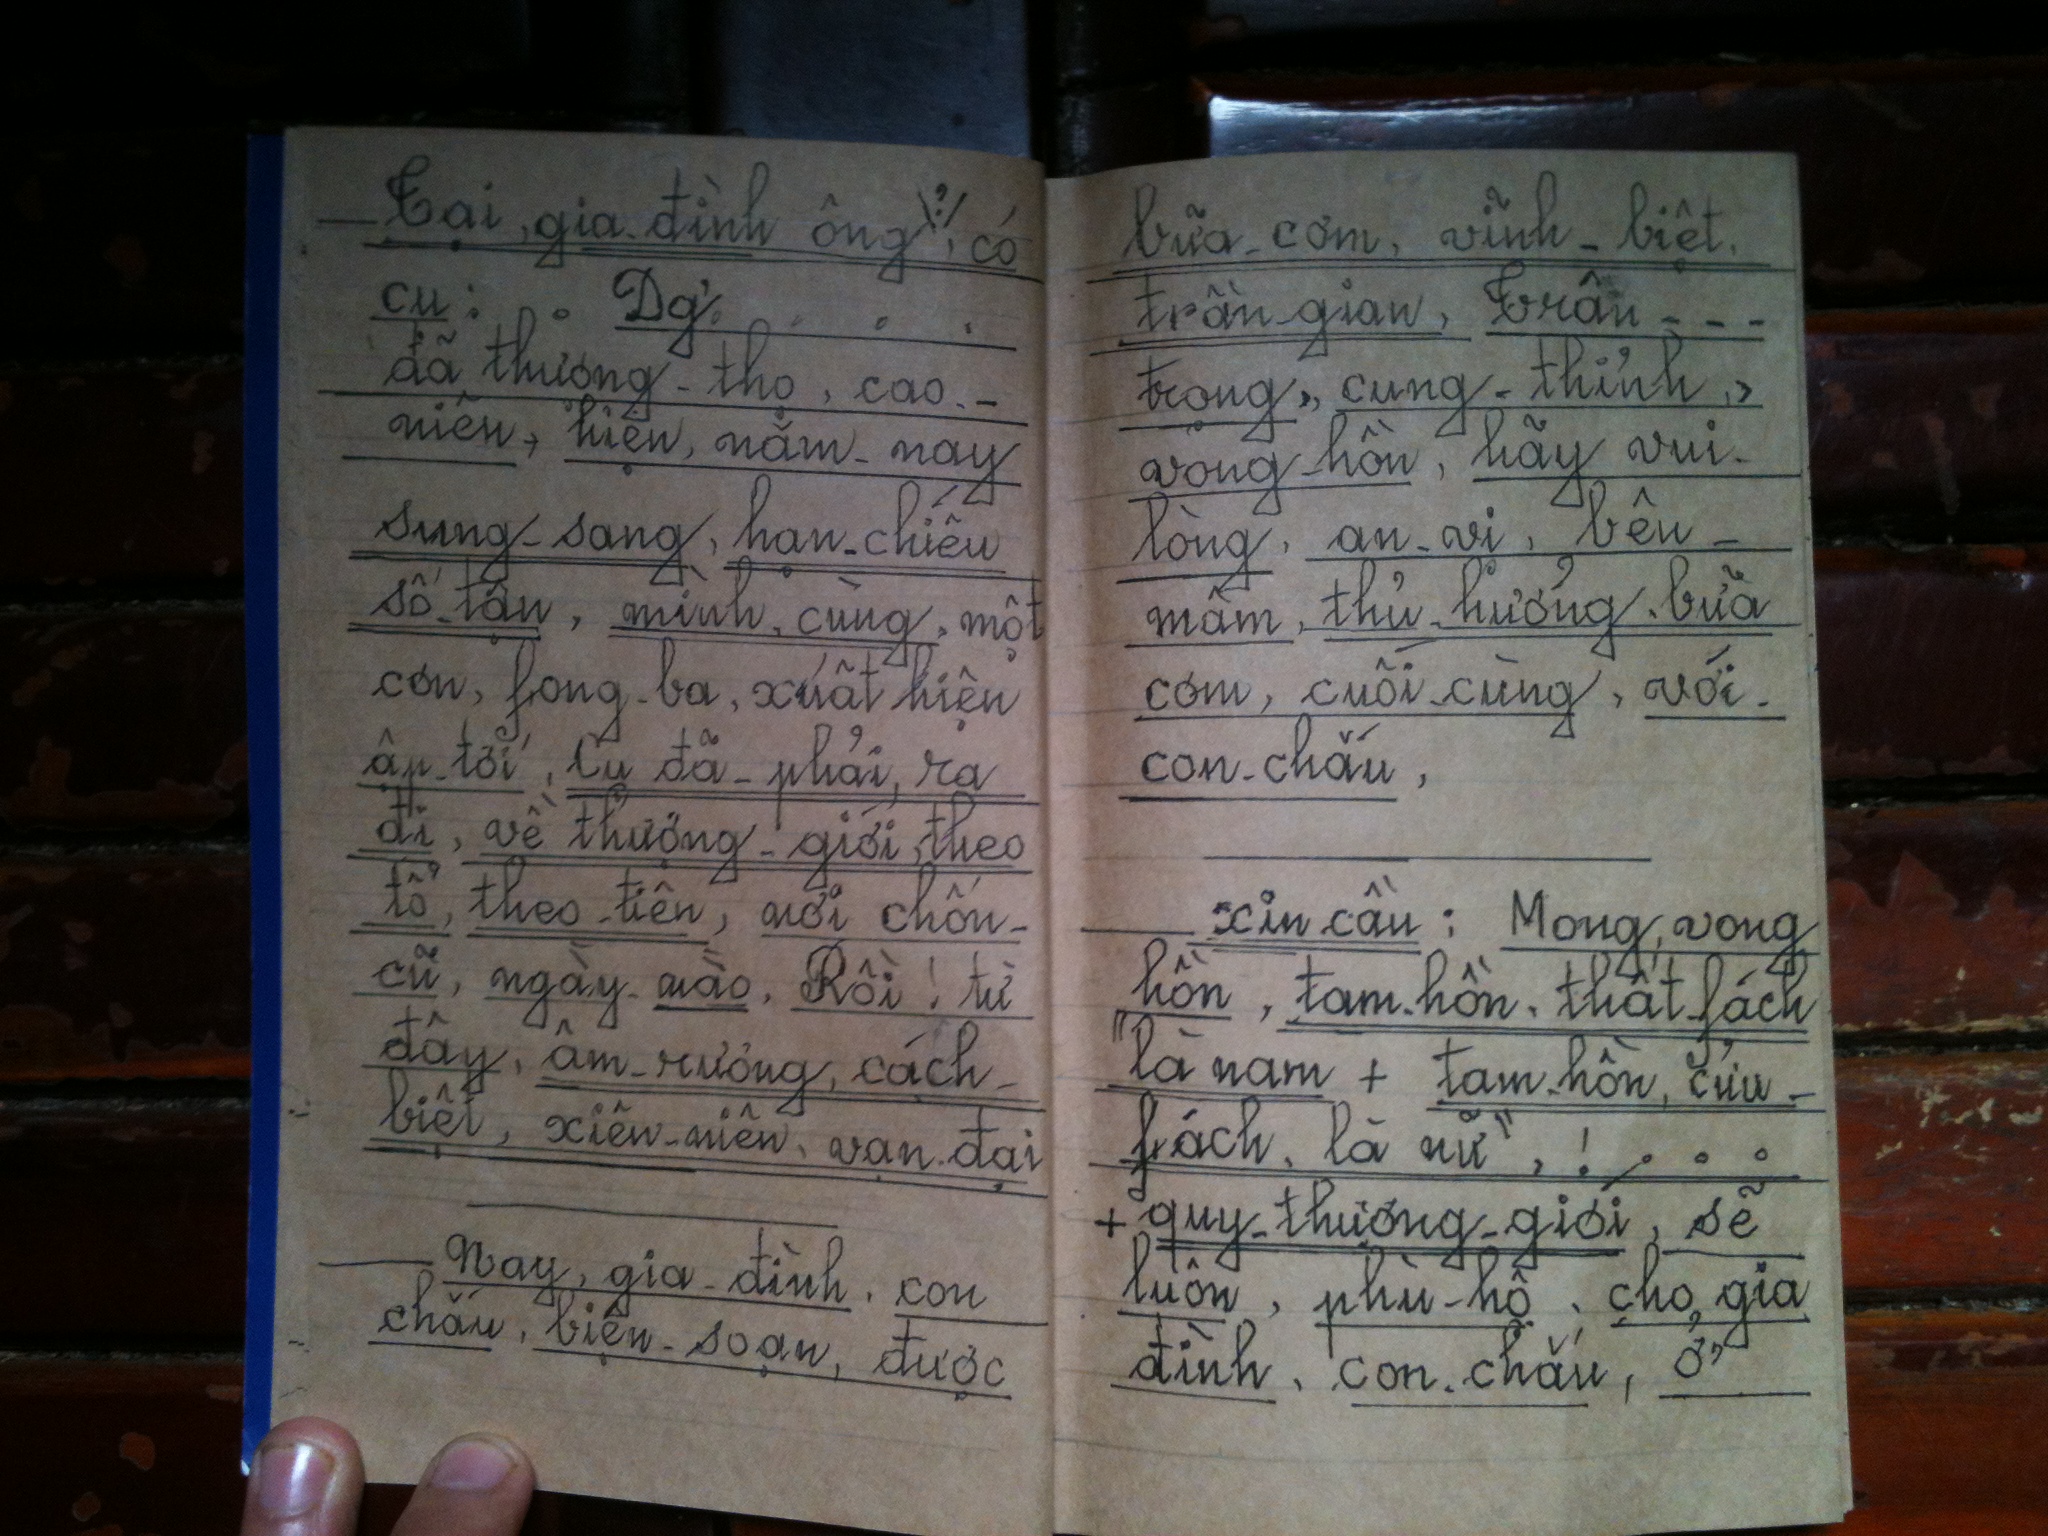 Tại, gia-đình ông "?", có
cụ: . Dg: . . .
đã thượng-thọ, cao-
niên, hiện, năm-nay
sung-sang, hạn-chiếu
số-tận, mình, cùng, một
cơn, fong-ba, xuất hiện
ập-tới, Cụ đã-phải, ra
đi, về thượng-giới, theo
tổ, theo-tiên, nơi chốn-
cũ, ngày-nào, Rồi! từ
đây, âm-rương, cách-
biệt, xiên-niên, vạn-đại
Nay, gia-đình, con
chắu, biện-soạn, được
bữa-cơm, vĩnh-biệt,
trần-gian, trân---
trọng, cung-thỉnh,
vong-hồn, hãy vui-
lòng, an-vị, bên-
mâm, thụ-hưởng, bữa
cơm, cuối-cùng, với-
con-chắu,
xin cầu: Mong, vong
hồn, tam-hồn, thất-fách
"là nam + tam-hồn, cửu-
fách, là nữ", ! . . .
+ quy-thượng-giới, sẽ
luôn, phù-hộ, cho, gia
đình, con-chắu, ở